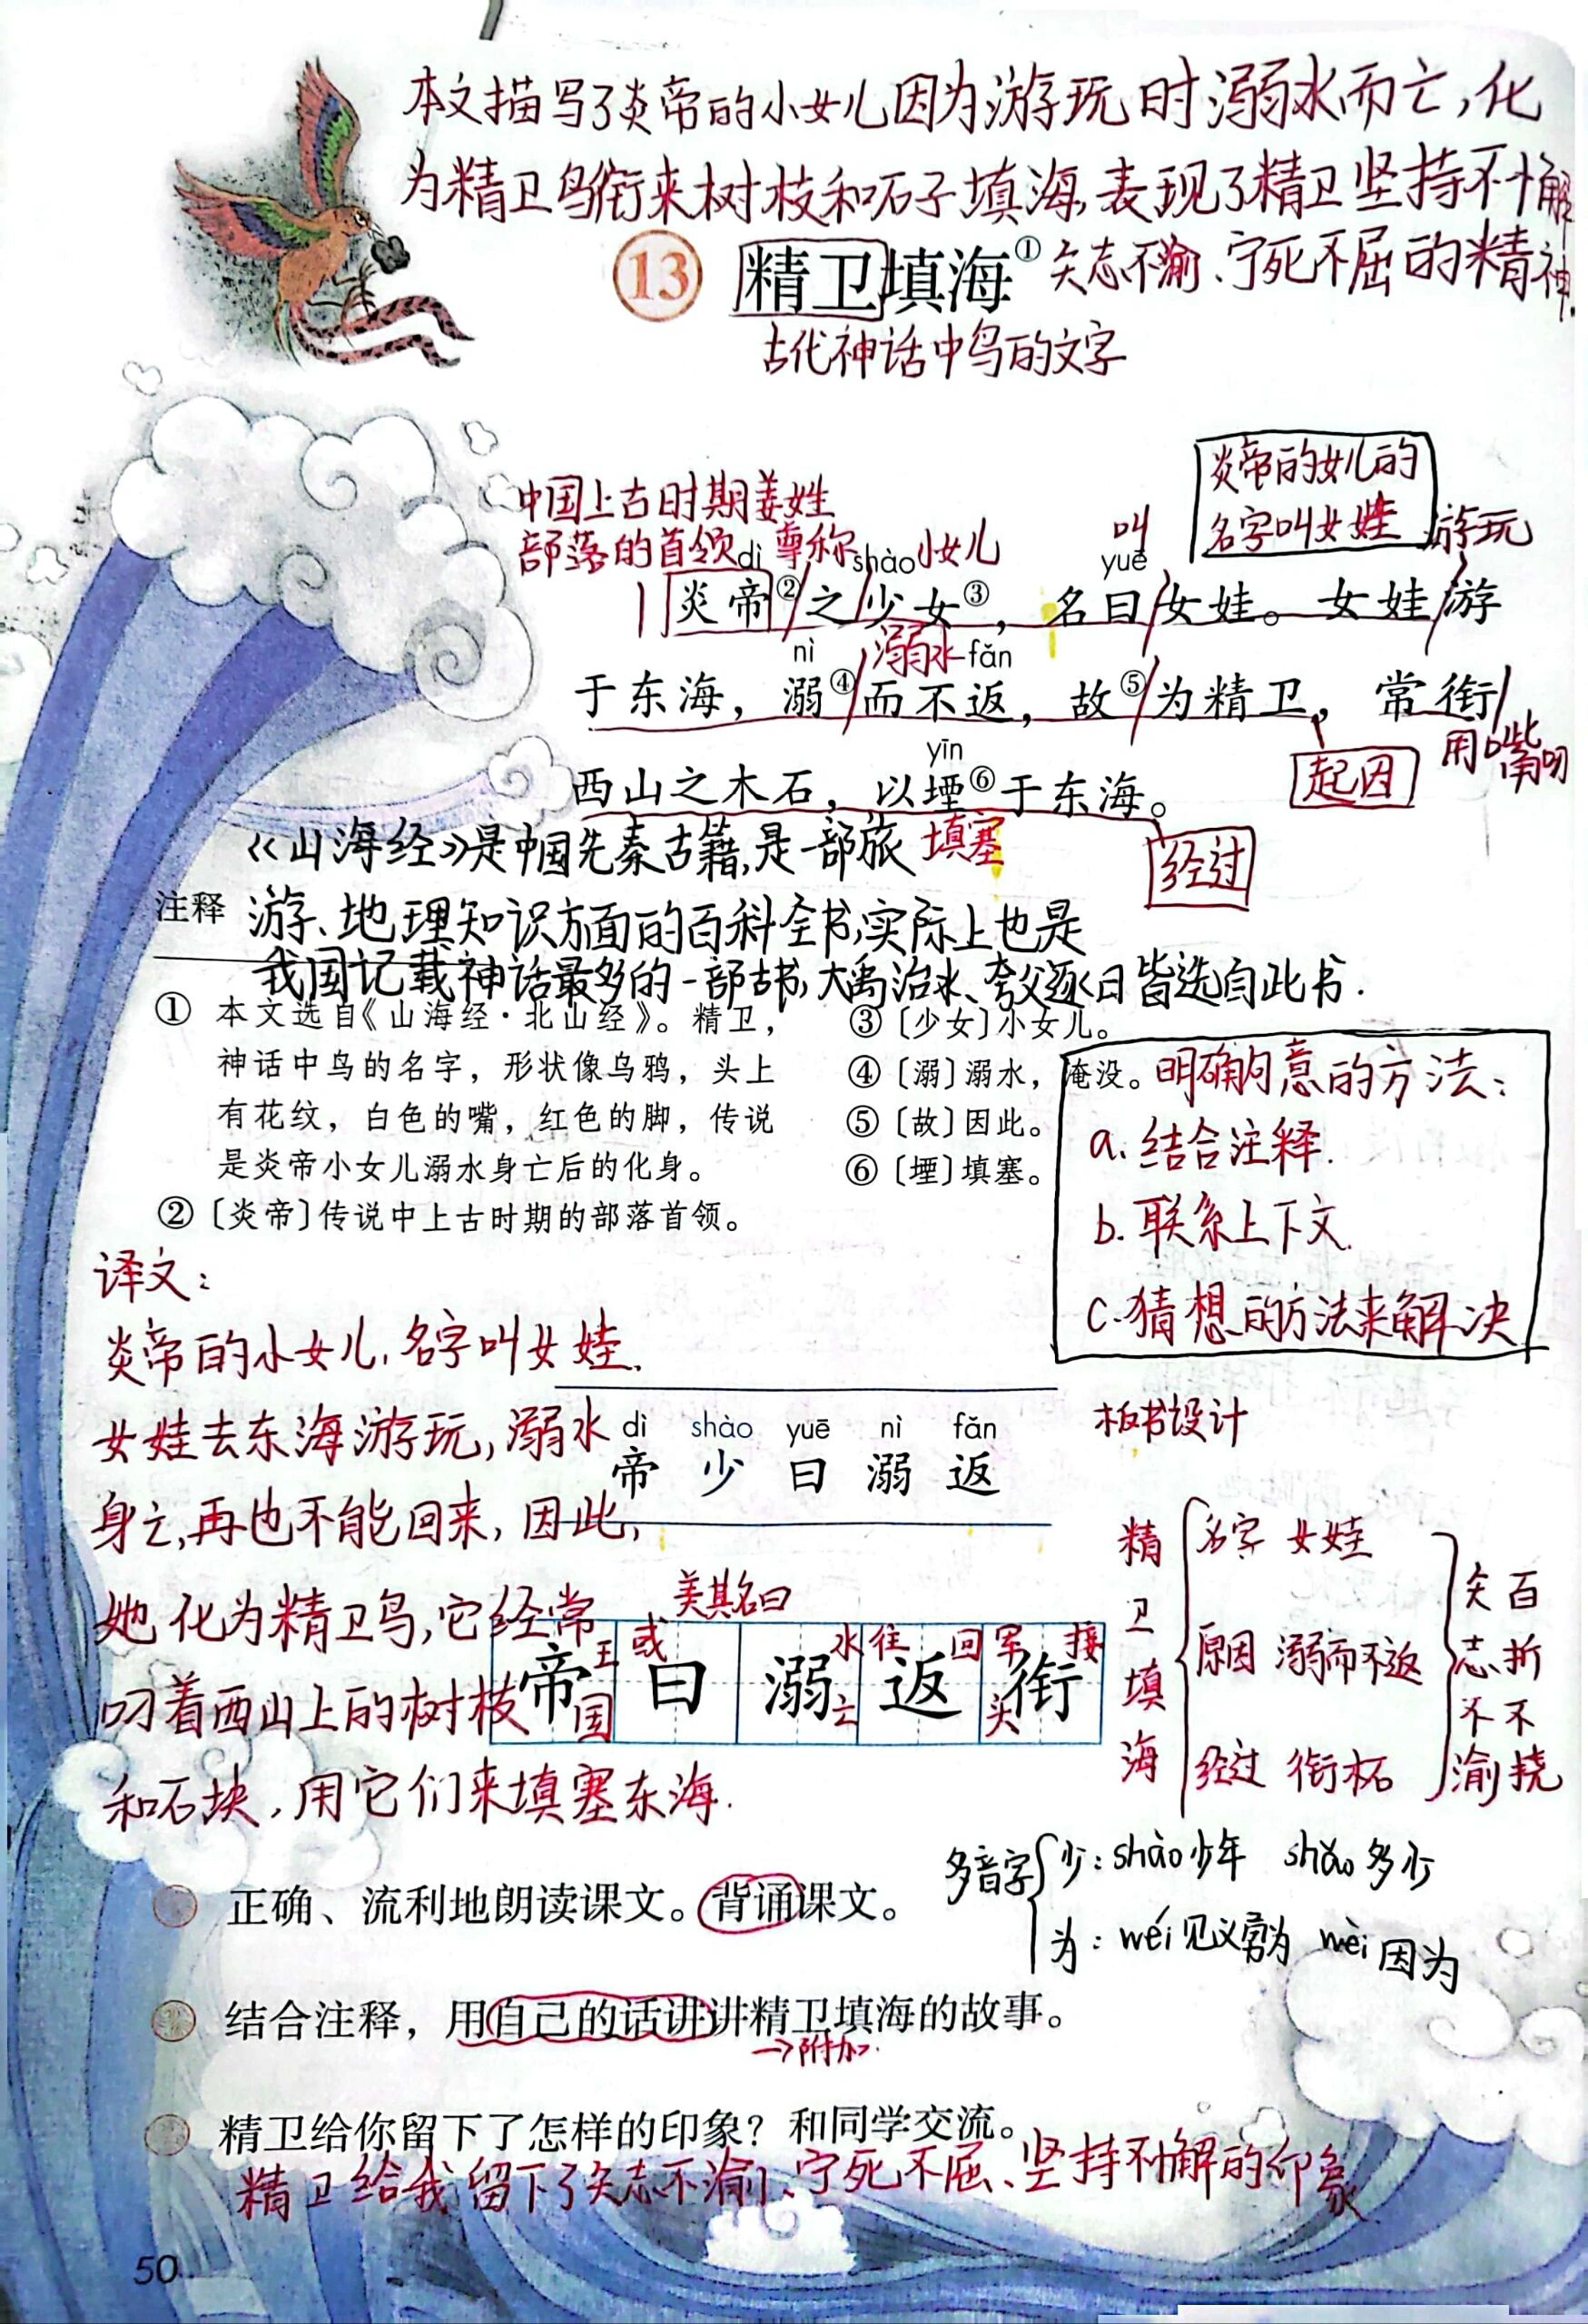 本文描写了炎帝的小女儿因为游玩时溺水而亡，化
为精卫鸟衔来树枝和石子填海，表现了精卫坚持不懈
13 精卫填海① 矢志不渝、宁死不屈的精神.
古代神话中鸟的文字
炎帝的女儿的
名字叫女娃
中国上古时期姜姓
部落的首领 尊称 小女儿 叫 游玩
dì shào yuē
炎帝②之少女③，名曰女娃。女娃游
nì 溺水 fǎn
于东海，溺④而不返，故⑤为精卫，常衔
用嘴叼
起因
yīn
西山之木石，以堙⑥于东海。
填塞
经过
《山海经》是中国先秦古籍,是一部旅
游、地理知识方面的百科全书,实际上也是
我国记载神话最多的一部古书,大禹治水、夸父逐日皆选自此书.
注释
① 本文选自《山海经·北山经》。精卫，
神话中鸟的名字，形状像乌鸦，头上
有花纹，白色的嘴，红色的脚，传说
是炎帝小女儿溺水身亡后的化身。
②〔炎帝〕传说中上古时期的部落首领。
③〔少女〕小女儿。
④〔溺〕溺水，淹没。
⑤〔故〕因此。
⑥〔堙〕填塞。
明确句意的方法：
a. 结合注释.
b. 联系上下文.
c. 猜想的方法来解决
译文：
炎帝的小女儿,名字叫女娃.
女娃去东海游玩,溺水
身亡,再也不能回来,因此,
她化为精卫鸟,它经常
叼着西山上的树枝
和石块,用它们来填塞东海.
dì shào yuē nì fǎn
帝 少 曰 溺 返
美其名曰
王 或 水 往 回 军 接
帝 曰 溺 返 衔
国 亡 头
板书设计
精卫填海
名字 女娃
原因 溺而不返
经过 衔木石
矢志不渝
百折不挠
多音字
少：shào 少年 shǎo 多少
为：wéi 见义勇为 wèi 因为
正确、流利地朗读课文。背诵课文。
结合注释，用自己的话讲讲精卫填海的故事。
→附加.
精卫给你留下了怎样的印象？和同学交流。
精卫给我留下了矢志不渝、宁死不屈、坚持不懈的印象
50